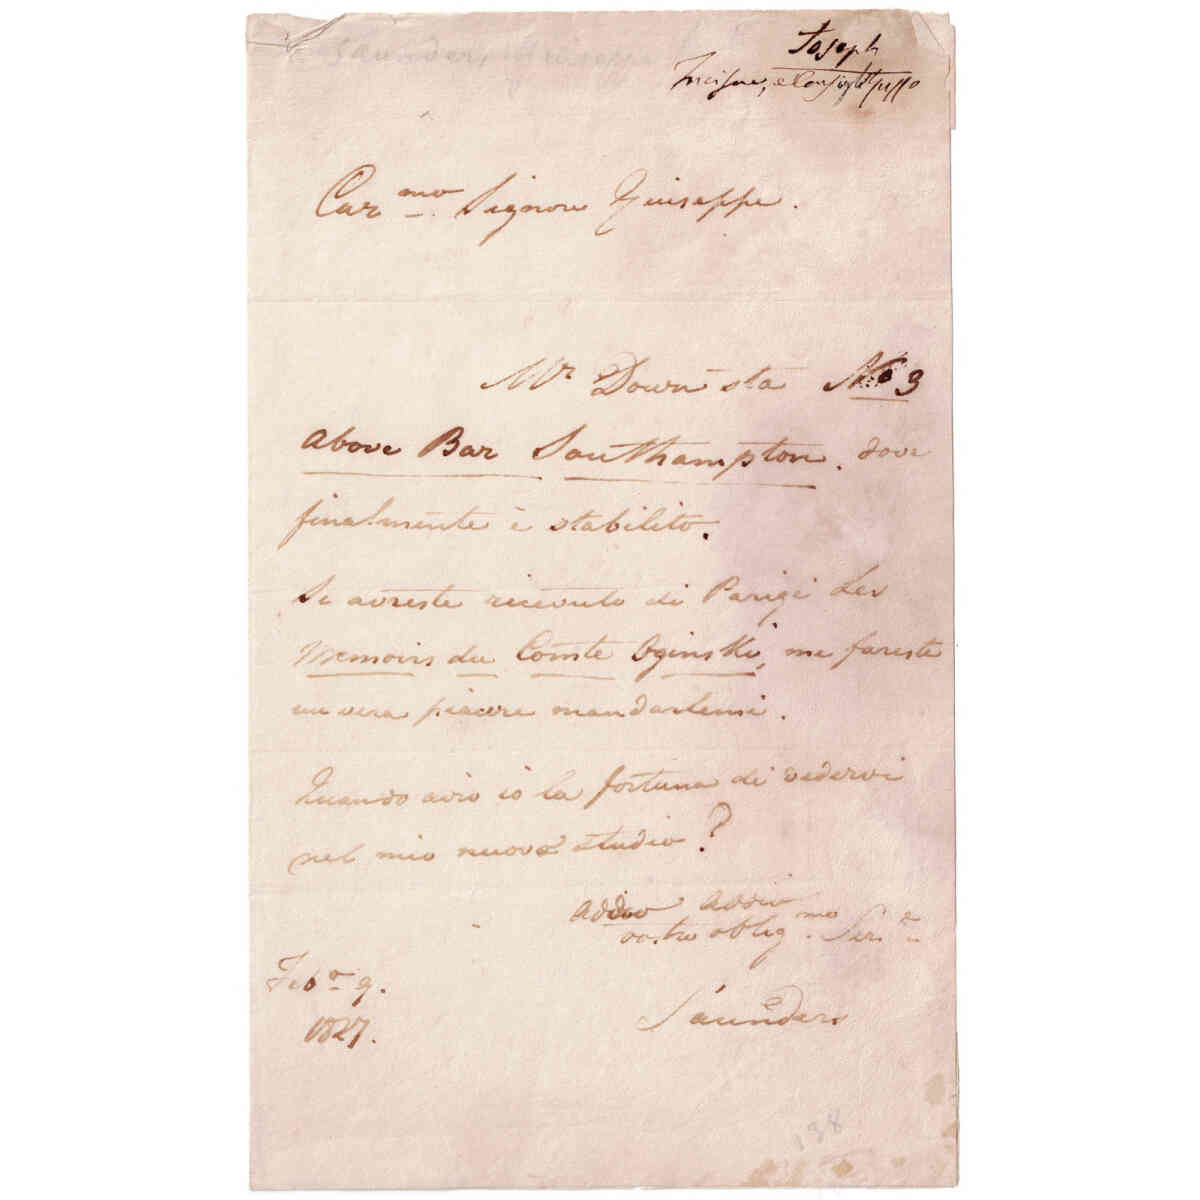 Saunders Giuseppe
Joseph
Incisore, e
Car.mo Signore Giuseppe.
Mr Down sta No 3
above Bar Southampton. dove
finalmente è stabilito.
Se avreste ricevuto di Parigi Les
Memoirs du Comte Oginski, me fareste
un vera piacere mandarlemi.
Quando avro io la fortuna di vedervi
nel mio nuovo studio?
Addio addio
vostro oblig.mo Ser.e
Saunders
Feb.o 9.
1827.
138